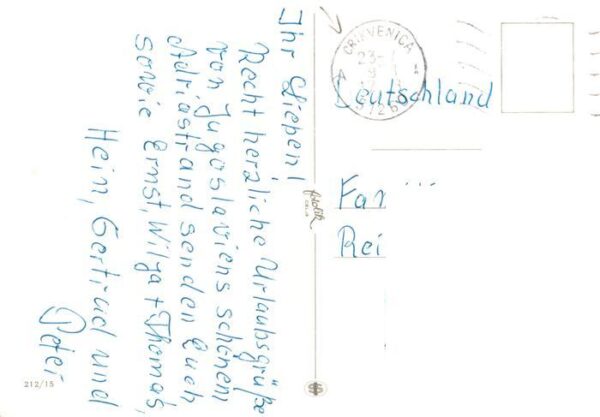 Ihr Lieben!
Recht herzliche Urlaubsgrüße
von Jugoslaviens schönem
Adriastrand senden Euch
sowie Ernst, Wilga + Thomas,
Hein, Gertrud und
Peter
212/15
CRIKVENICA
Deutschland
Fam ...
Rei